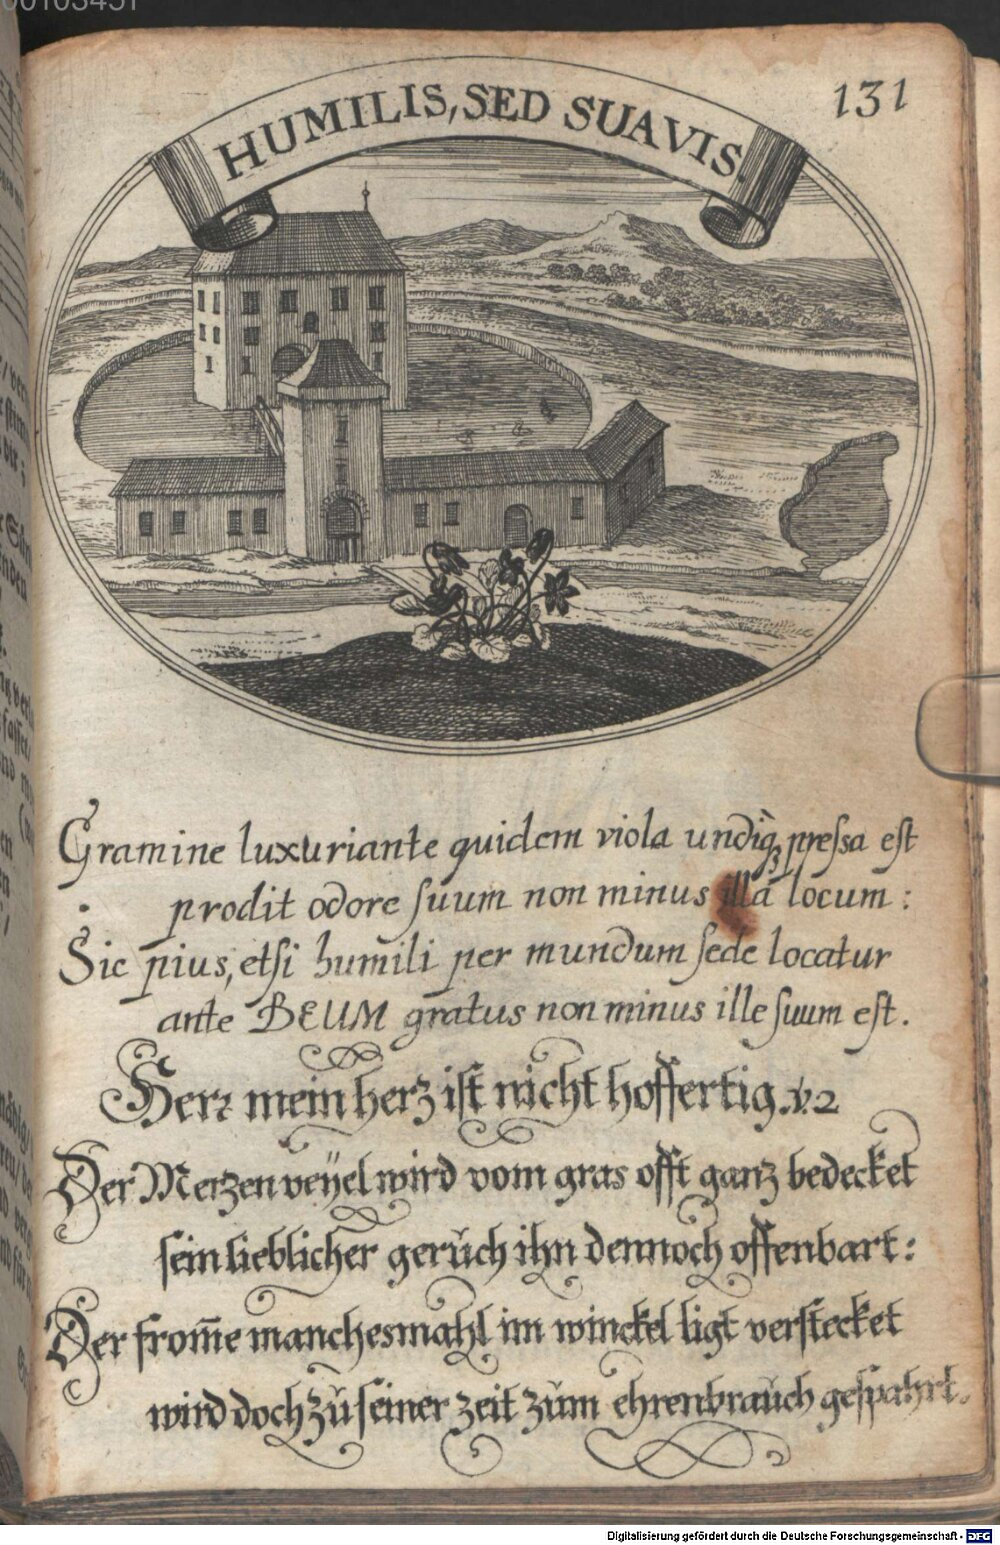 00103451
131
HUMILIS, SED SUAVIS.
Gramine luxuriante quidem viola undiq̀ꝫ preſsa eſt
prodit odore ſuum non minus illa locum :
Sic pius, etſi humili per mundum ſede locatur
ante DEUM gratus non minus ille ſuum eſt.
Herr mein herz iſt nicht hoffertig. ℣. 2
Der Merzenveÿel wird vom gras offt ganz bedecket
ſein lieblicher gerŭch ihn dennoch offenbart :
Der from̄e manchesmahl im winckel ligt verſtecket
wird doch zŭ ſeiner zeit zŭm ehrenbraŭch geſpahrt.
Digitalisierung gefördert durch die Deutsche Forschungsgemeinschaft - DFG